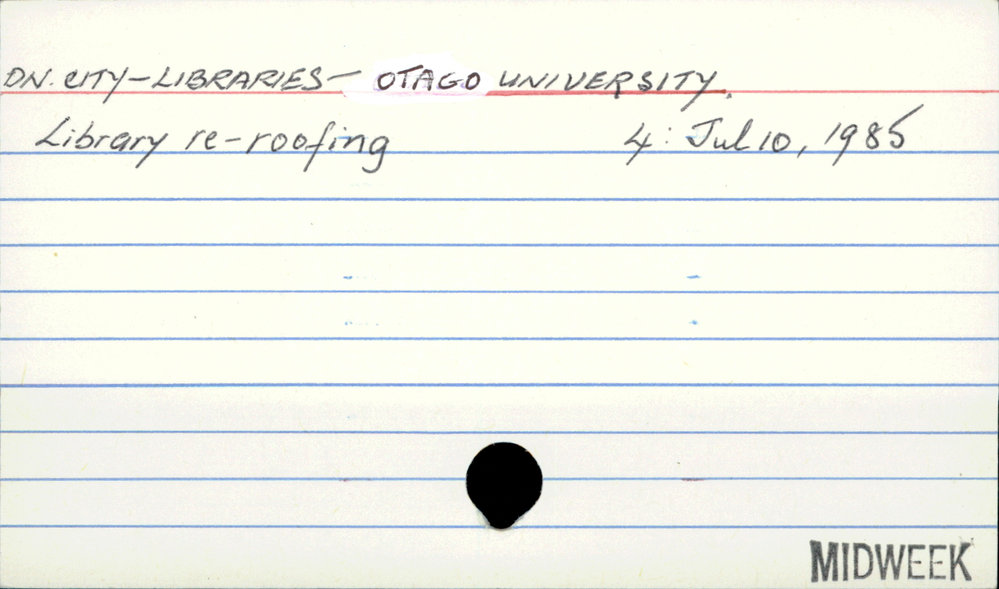 DN. CITY-LIBRARIES- OTAGO UNIVERSITY.
Library re-roofing 4: Jul 10, 1985
MIDWEEK